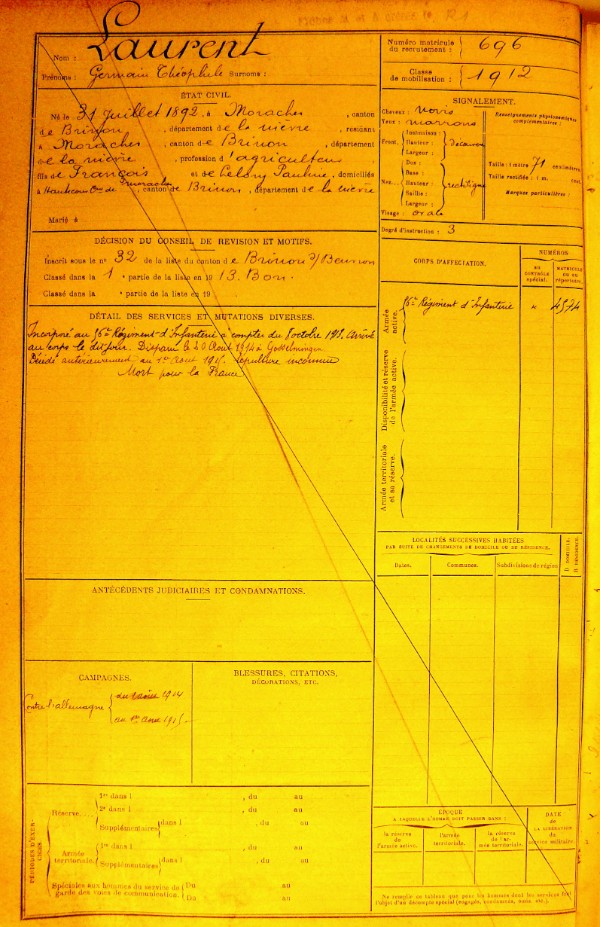 Nom : Laurent
Prénoms : Germain Théophile Surnoms :
Numéro matricule du recrutement : 696
Classe de mobilisation : 1912
ÉTAT CIVIL
Né le 31 juillet 1892, à Moraches, canton
de Brinon, département de la nièvre, résidant
à Moraches, canton de Brinon, département
de la nièvre, profession d'agriculteur
fils de François et de Pauline, domiciliés
à Moraches, canton de Brinon, département de la nièvre
Marié à
SIGNALEMENT.
Cheveux :
Yeux : marrons
Front. Inclinaison :
Hauteur :
Largeur :
Nez. Dos :
Base :
Hauteur : rectiligne
Saillie :
Largeur :
Visage : ovale
Renseignements physionomiques complémentaires :
Taille : 1 mètre 71 centimètres.
Taille rectifiée : 1 m. cent.
Marques particulières :
Degré d'instruction : 3
DÉCISION DU CONSEIL DE REVISION ET MOTIFS.
Inscrit sous le n° 32 de la liste du canton de Brinon s/ Beuvron
Classé dans la 1 e partie de la liste en 1913. Bon.
Classé dans la e partie de la liste en 19
DÉTAIL DES SERVICES ET MUTATIONS DIVERSES.
Incorporé au Régiment d'Infanterie à compter du 8 octobre Arrivé
au corps le dit jour. Disparu le 20 Août 1914 à
Décédé antérieurement au 1er Sépulture inconnue
Mort pour la France
CORPS D'AFFECTATION.
NUMÉROS
AU CONTRÔLE spécial.
MATRICULE OU AU répertoire.
Armée active.
Régiment d'Infanterie " 4574
Disponibilité et réserve de l'armée active.
Armée territoriale et sa réserve.
LOCALITÉS SUCCESSIVES HABITÉES
PAR SUITE DE CHANGEMENTS DE DOMICILE OU DE RÉSIDENCE.
Dates.
Communes.
Subdivisions de région
D. DOMICILE.
R. RÉSIDENCE.
ANTÉCÉDENTS JUDICIAIRES ET CONDAMNATIONS.
CAMPAGNES.
Contre l'allemagne
du août 1914
au 1er 1915
BLESSURES, CITATIONS,
DÉCORATIONS, ETC.
PÉRIODES D'EXERCICES
Réserve.
1re dans l , du au
2e dans l , du au
Supplémentaires dans l , du au
Armée territoriale.
1re dans l , du au
Supplémentaires dans l , du au
Spéciales aux hommes du service de garde des voies de communication.
Du au
Du au
ÉPOQUE
À LAQUELLE L'HOMME DOIT PASSER DANS :
la réserve de l'armée active.
l'armée territoriale.
la réserve de l'armée territoriale.
DATE de LA LIBÉRATION du service militaire.
Ne remplir ce tableau que pour les hommes dont les services font
l'objet d'un décompte spécial (engagés, condamnés, omis, etc.).